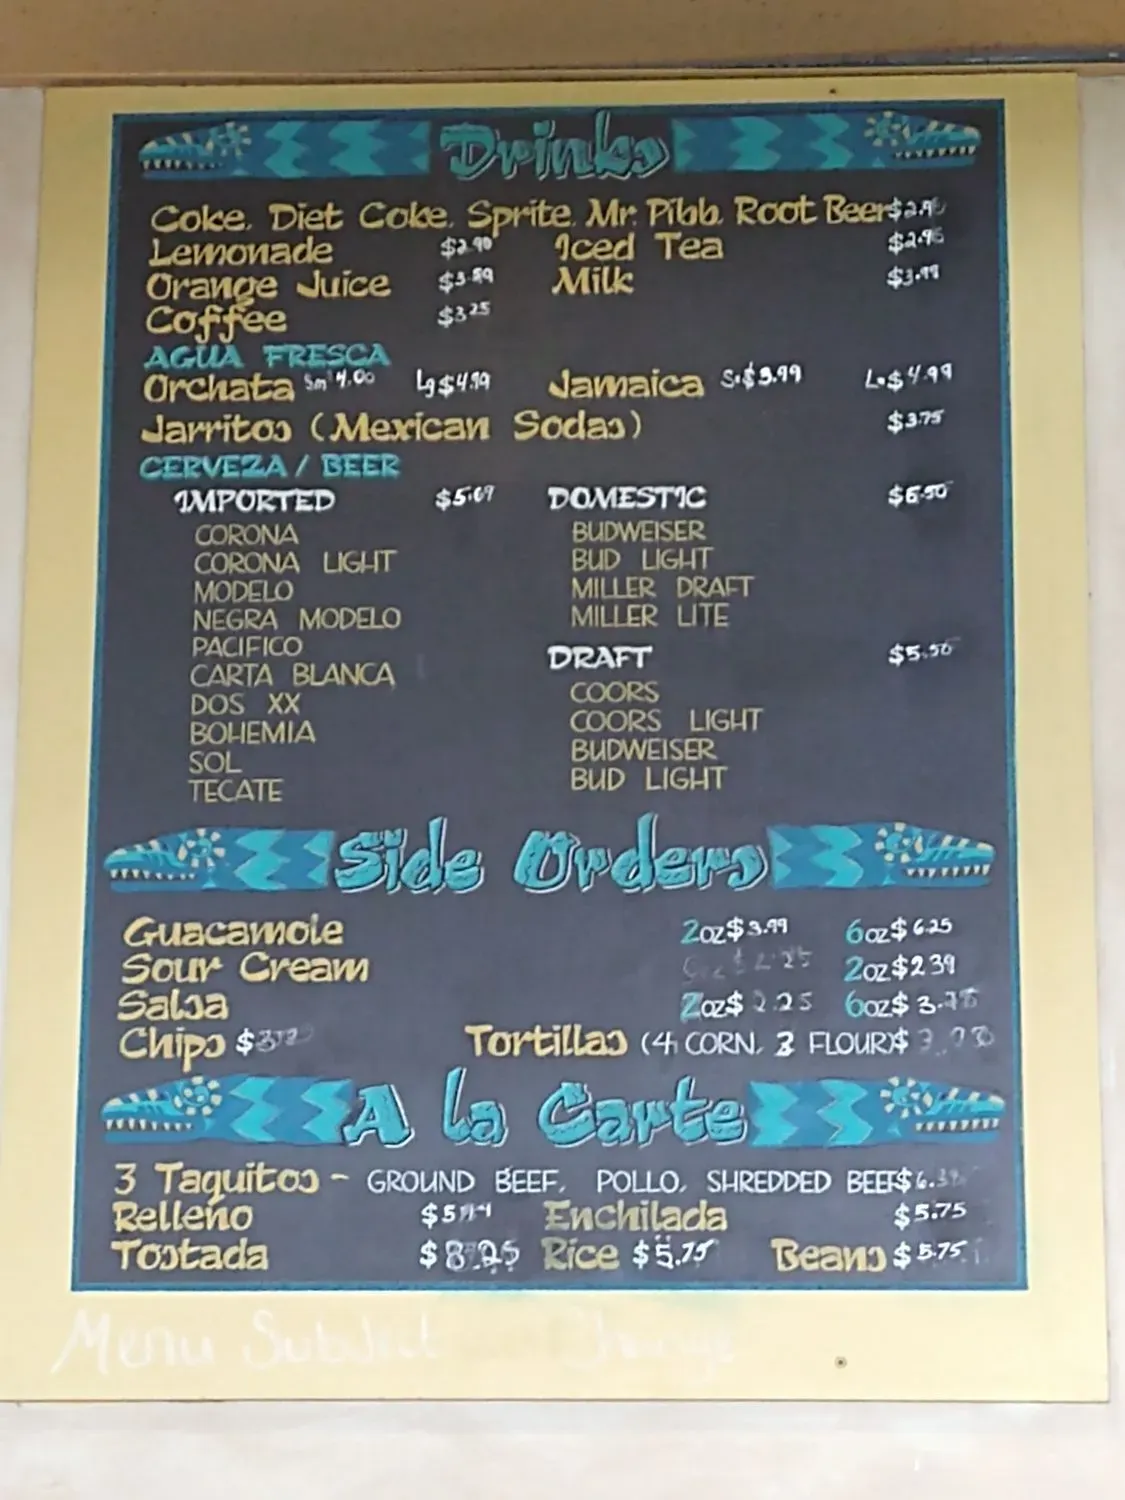 Drinks
Coke, Diet Coke, Sprite, Mr. Pibb, Root Beer
Lemonade $2.90 Iced Tea $2.95
Orange Juice $3.89 Milk $3.99
Coffee $3.25
AGUA FRESCA
Orchata Sm 4.00 Lg $4.99 Jamaica $3.99 $4.99
Jarritos (Mexican Sodas) $3.75
CERVEZA / BEER
IMPORTED DOMESTIC $6.50
CORONA BUDWEISER
CORONA LIGHT BUD LIGHT
MODELO MILLER DRAFT
NEGRA MODELO MILLER LITE
PACIFICO
CARTA BLANCA DRAFT $5.50
DOS XX COORS
BOHEMIA COORS LIGHT
SOL BUDWEISER
TECATE BUD LIGHT
Side Orders
Guacamole 2oz $3.99 6oz $6.25
Sour Cream 2oz $2.39
Salsa 2oz $2.25 6oz
Chips Tortillas (4 CORN, 3 FLOUR)
A la Carte
3 Taquitos - GROUND BEEF, POLLO, SHREDDED BEEF
Relleno Enchilada $5.75
Tostada $8.25 Rice $5.75 Beans $5.75
Menu Subject Change